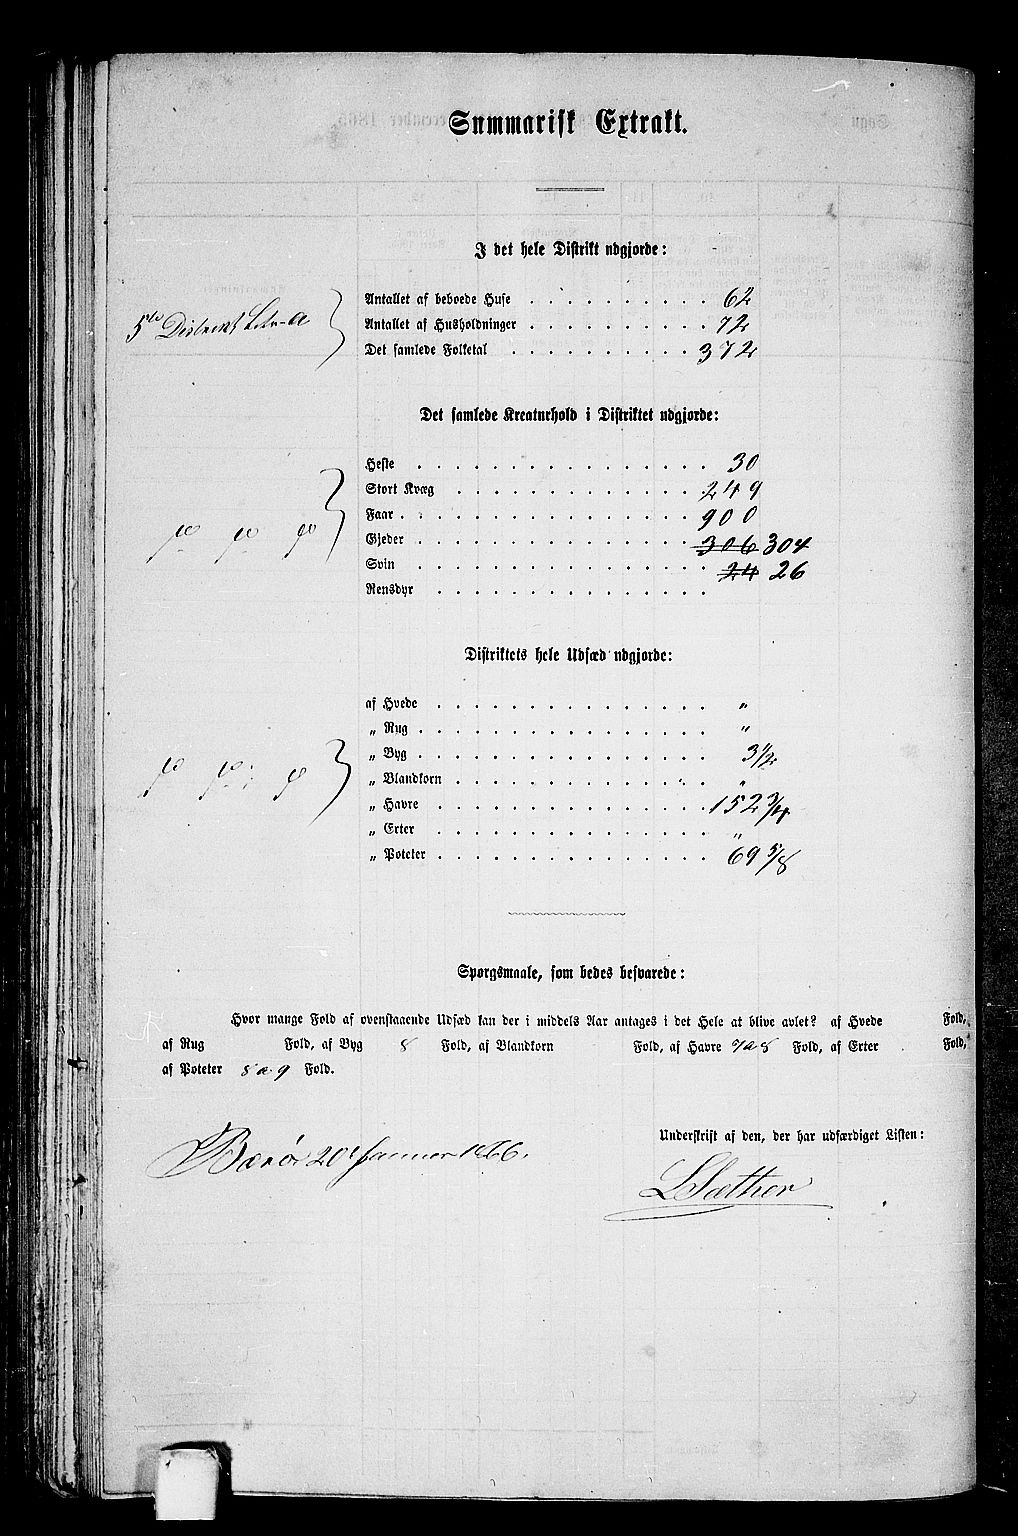 Summarisk Extrakt.
I det hele Distrikt udgjorde:
5te District Litr. a
Antallet af beboede Huse 62
Antallet af Husholdninger 72
Det samlede Folketal 372
Det samlede Kreaturhold i Distriktet udgjorde:
Heste 30
Stort Kvæg 249
Faar 900
Gjeder 306 304
Svin 24 26
Rensdyr
Distriktets hele Udsæd udgjorde:
af Hvede "
„ Rug "
„ Byg 3 1/2
„ Blandkorn "
„ Havre 152 3/4
„ Erter "
„ Poteter 69 5/8
Spørgsmaale, som bedes besvarede:
Hvor mange Fold af ovenstaaende Udsæd kan der i middels Aar antages i det Hele at blive avlet? af Hvede Fold,
af Rug Fold, af Byg 8 Fold, af Blandkorn Fold, af Havre 7 a 8 Fold, af Erter Fold,
af Poteter 8 a 9 Fold.
Underskrift af den, der har udfærdiget Listen:
20de Januar 1866.
L Sæther